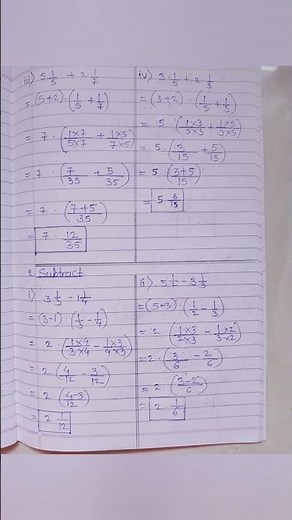 iii) 5 1/5 + 2 1/7
= (5+2) · (1/5 + 1/7)
= 7 · (1×7/5×7 + 1×5/7×5)
= 7 · (7/35 + 5/35)
= 7 · (7+5/35)
= 7 · 12/35
iv) 3 1/5 + 2 1/3
= (3+2) · (1/5 + 1/3)
= 5 · (1×3/5×3 + 1×5/3×5)
= 5 · (3/15 + 5/15)
= 5 · (3+5/15)
= 5 8/15
2 Subtract
i) 3 1/3 - 1 1/4
= (3-1) · (1/3 - 1/4)
= 2 · (1×4/3×4 - 1×3/4×3)
= 2 (4/12 - 3/12)
= 2 (4-3/12)
= 2 1/12
ii) 5 1/2 - 3 1/3
= (5-3) · (1/2 - 1/3)
= 2 · (1×3/2×3 - 1×2/3×2)
= 2 · (3/6 - 2/6)
= 2 · (3-2/6)
= 2 · 1/6